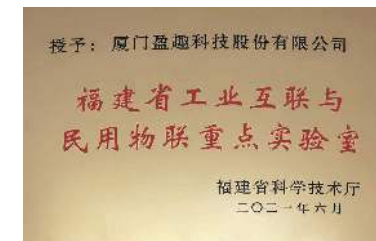 授予：厦门盈趣科技股份有限公司
福建省工业互联与
民用物联重点实验室
福建省科学技术厅
二〇二一年六月